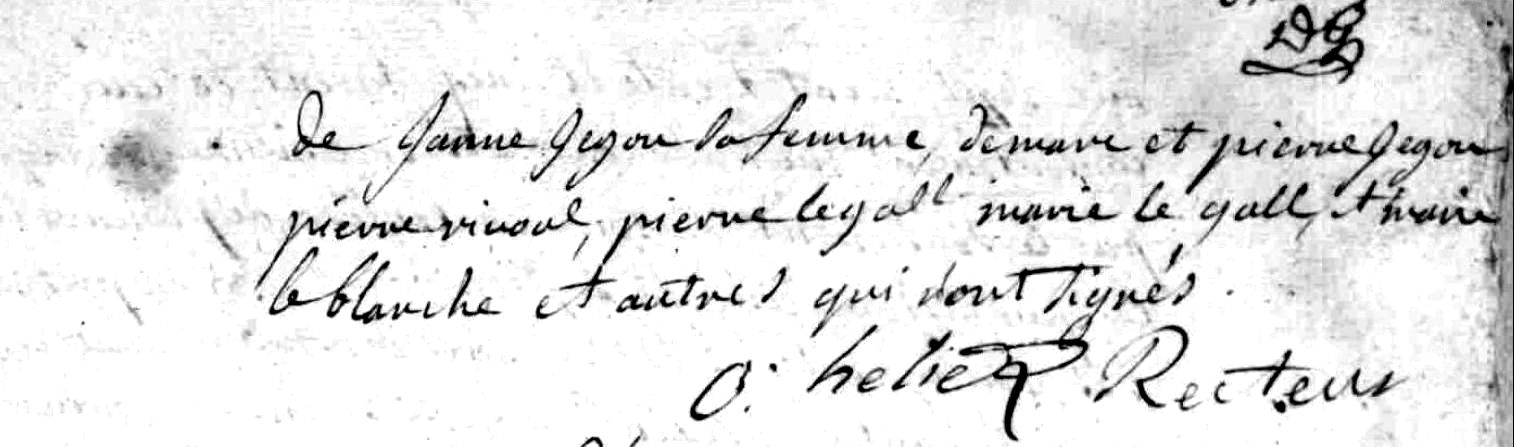 de Janne Jegou sa femme, de marc et pierre Jegou
pierre rivoal, pierre le gall marie le gall, et marie
le blanche et autres qui n'ont signés.
O: helie Recteur